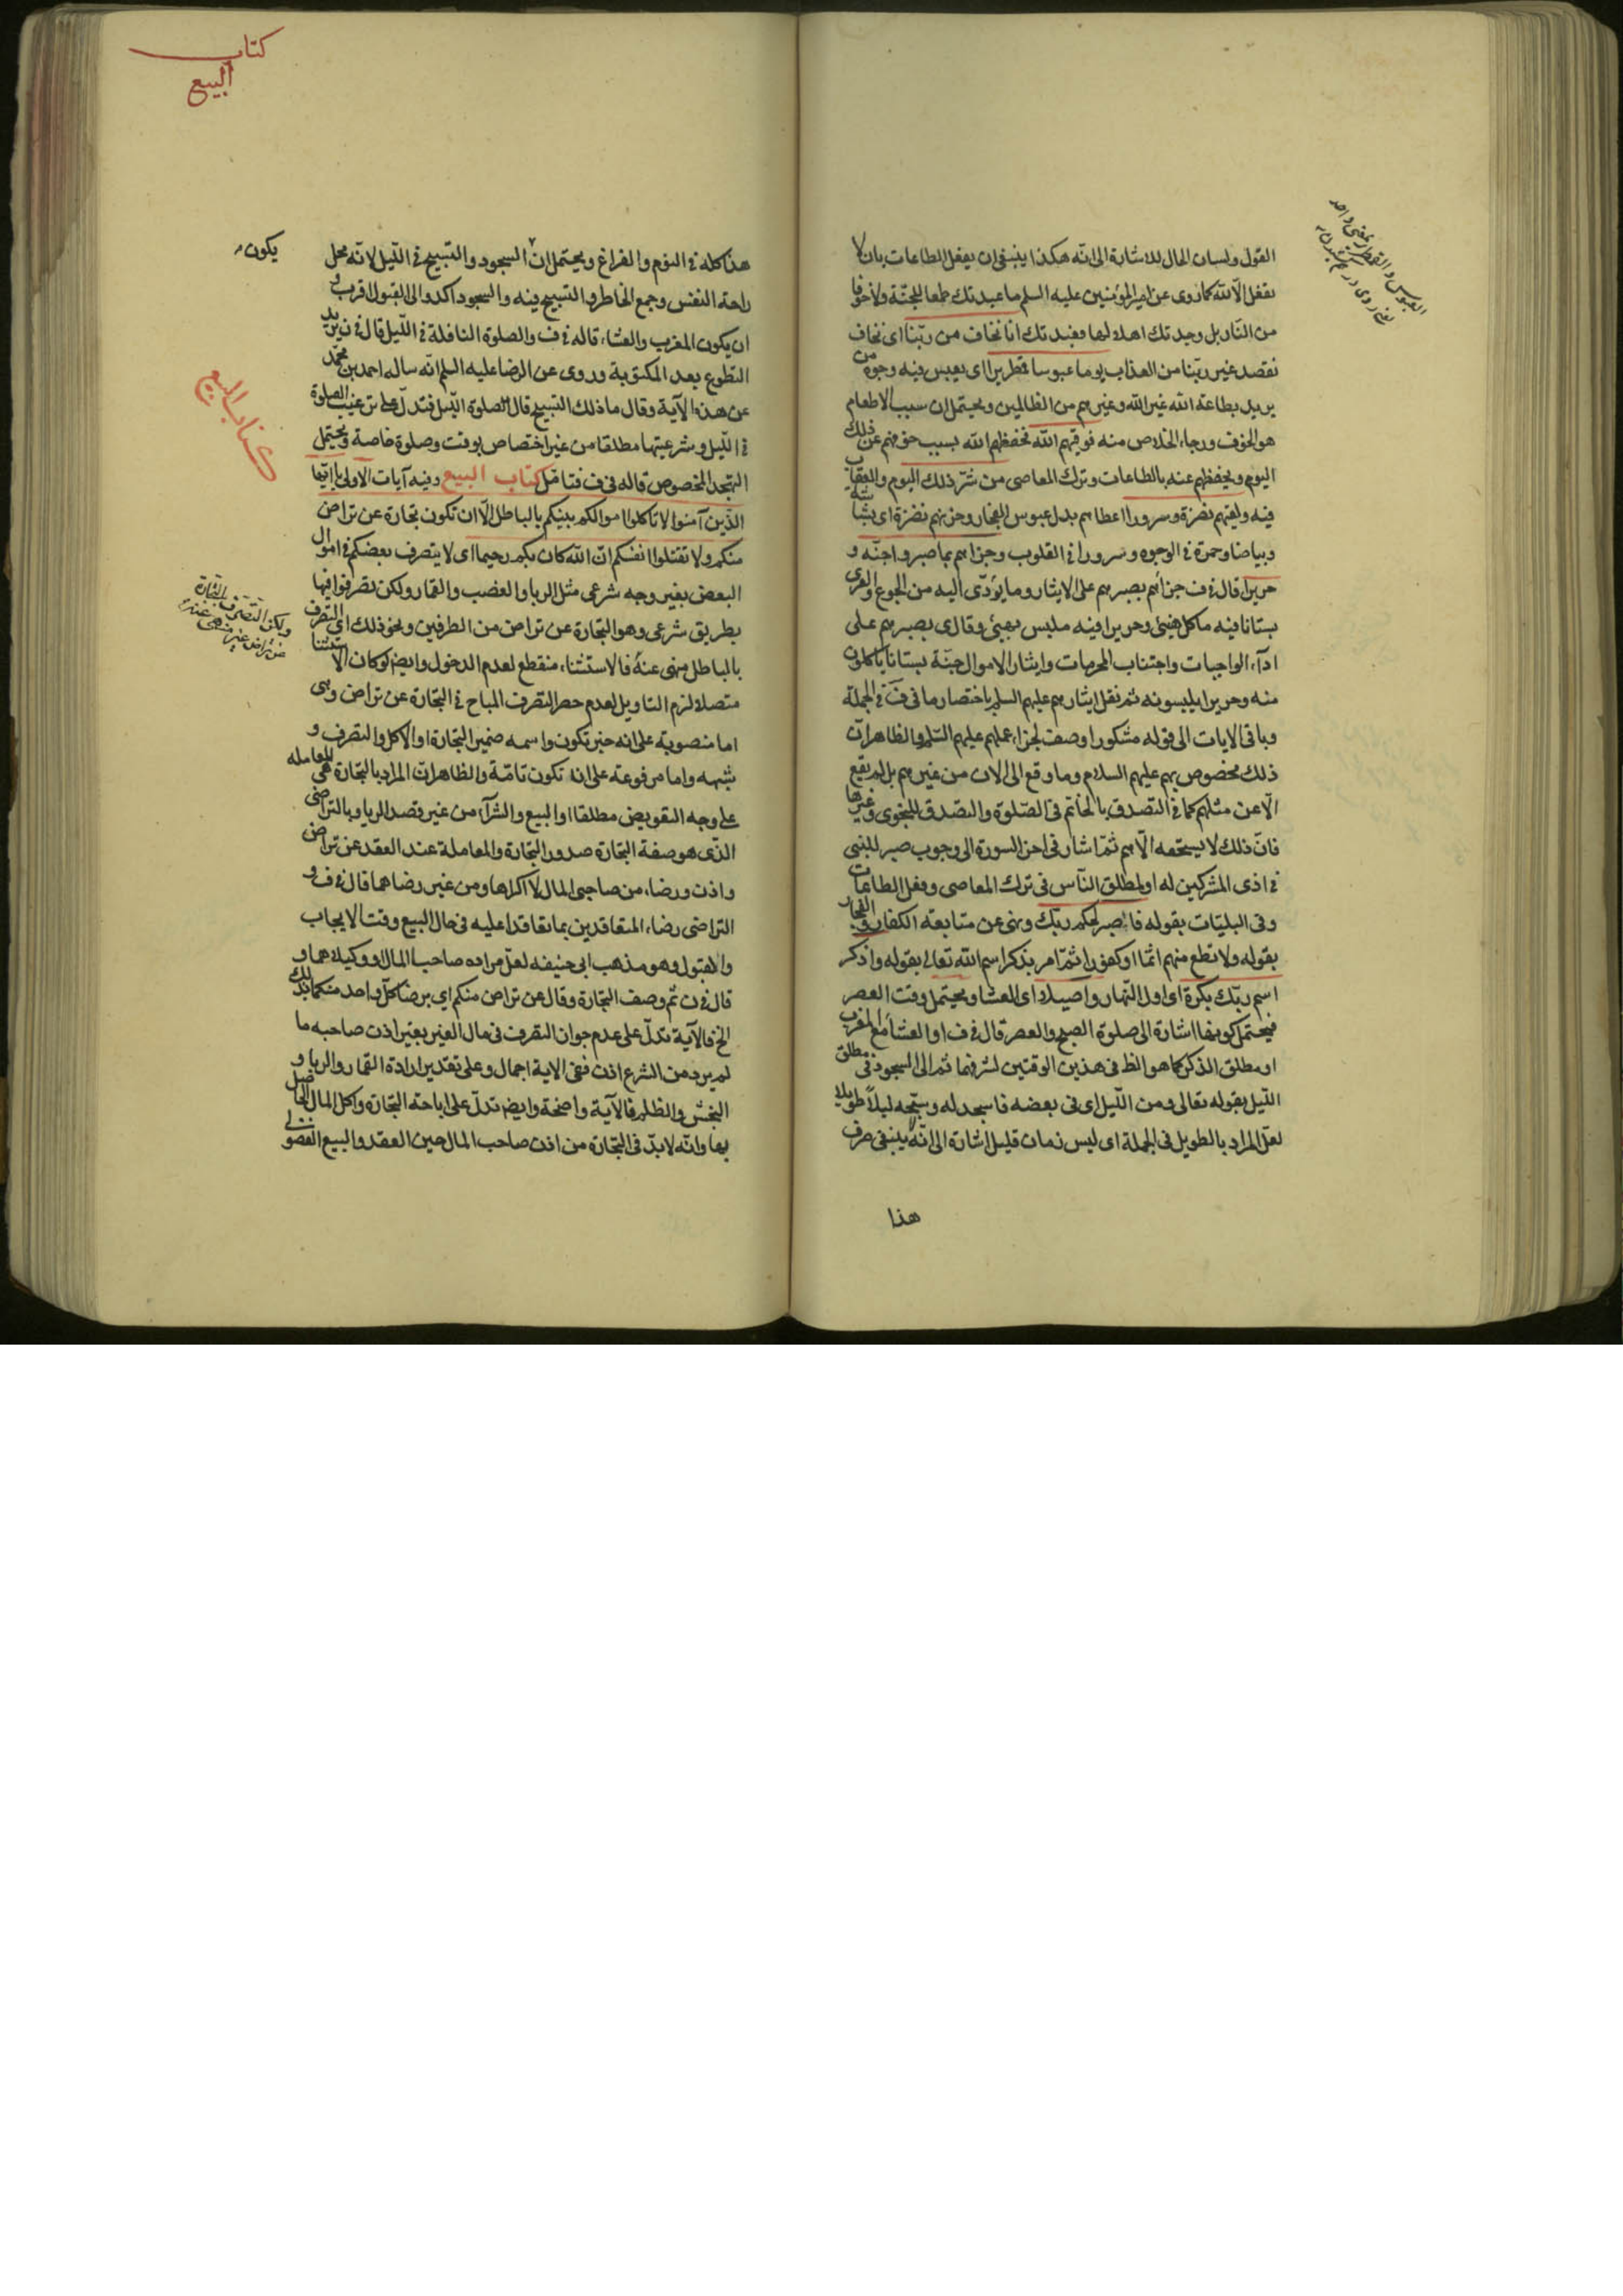 القول ولسان الحال للاشارة الى انّه هكذا ينبغى ان يفعل الطاعات بان لا
تفعل الّا لله كما روى عن امير المؤمنين عليه السلم ما عبدتك طمعا للجنّة ولا خوفا
من النّار بل وجدتك اهلا لها فعبدتك انا نخاف من ربّنا اى نخاف
نقصد غير ربّنا من العذاب يوما عبوسا قمطريرا اى يعبس فيه وجوه من
يريد بطاعة الله غير الله وغيرهم من الظالمين ويحتمل ان سبب الاطعام
هو الخوف ورجاء الخلاص منه فوقيهم الله نحفظهم الله بسبب خوفهم عن ذلك
اليوم ويحفظهم عنه بالطاعات وترك المعاصى من شرّ ذلك اليوم والعقاب
فيه ولقيهم نضرة وسرورا اعطاهم بدل عبوس الفجار وحزنهم نضرة اى بشاشة
وبياضا وحمرة فى الوجوه وسرورا فى القلوب وجزاهم بما صبروا جنّة و
حريرا قال فى ف جزاهم بصبرهم على الايثار وما يؤدّى اليه من الجوع والعرى
بستانا فيه ماكل هنيئ وحريرا فيه ملبس بهيئ وقال ى بصبرهم على
اداء الواجبات واجتناب المحرمات وايثار الاموال جنّة بستانا ياكلون
منه وحريرا يلبسونه ثم نقل ايثارهم عليهم السلم باختصار ما فى ف وفى الجملة
وباقى الايات الى قوله مشكورا وصف لجزاء عملهم عليهم السّلم والظاهر انّ
ذلك مخصوص بهم عليهم السلام وما وقع الى الان من غيرهم بل لم يقع
الّا عن مثلهم كما فى التصدق بالخاتم فى الصّلوة والتصدق للنجوى وغيرها
فانّ ذلك لا يستحقه الّا هم ثمّ اشار فى اخر السورة الى وجوب صبر للنبى
فى اذى المشركين له او لمطلق النّاس فى ترك المعاصى وفعل الطاعات
وفى البليّات بقوله فاصبر لحكم ربّك ونهى عن متابعة الكفار والفجار
بقوله ولا تطع منهم اثما او كفورا ثمّ امر بذكر اسم الله تعالى بقوله واذكر
اسم ربّك بكرة اى اول النّهار واصيلا اى العشا ويحتمل وقت العصر
فيحتمل كونها اشارة الى صلوة الصبح والعصر قال فى ف او العشا مع المغرب
او مطلق الذكر كما هو الظ فى هذين الوقتين لشرفهما ثم الى السجود فى مطلق
اللّيل بقوله تعالى ومن اللّيل اى فى بعضه فاسجد له وسبّحه ليلاً طويلا
لعلّ المراد بالطويل فى الجملة اى ليس زمان قليل اشارة الى انّه ينبغى صرف
هذا
كتاب
البيع
هذا كله فى النوم والفراغ ويحتمل ان السجود والتسبيح فى اللّيل لانّه محل
يكون
راحة النفس وجمع الخاطر والتسبيح فيه والسجود اكد والى القبول اقرب و
ان يكون المغرب والعشاء قاله فى ف والصلوة النافلة فى اللّيل قال فى ن يريد
التطوع بعد المكتوبة وروى عن الرضا عليه السلم انّه ساله احمد بن محمّد
عن هذه الآية وقال ما ذلك التسبيح قال الصلوة اللّيل فتدلّ على ترغيب الصلوة
كتاب البيع
فى اللّيل وشرعيتها مطلقا من غير اختصاص بوقت وصلوة خاصة ويحتمل
التهجد المخصوص قاله فى ف فتامّل كتاب البيع وفيه آيات الاولى يا ايّها
الّذين آمنوا لا تاكلوا اموالكم بينكم بالباطل الّا ان تكون تجارة عن تراض
منكم ولا تقتلوا انفسكم انّ الله كان بكم رحيما اى لا يتصرف بعضكم فى اموال
البعض بغير وجه شرعى مثل الربا والغصب والقمار ولكن تصرفوا فيها
بطريق شرعى وهو التجارة عن تراض من الطرفين ونحو ذلك اى التصرف
ولكن التصرف بالتجارة
عن تراض غير منهى عنه
بالباطل منهى عنه فالاستثناء منقطع لعدم الدخول وايضا لو كان الاستثناء
متصلا لزم التاويل لعدم حصر التصرف المباح فى التجارة عن تراض وهى
اما منصوبة على انه خبر تكون واسمه ضمير التجارة او الاكل والتصرف و
شبهه واما مرفوعة على انه تكون تامّة والظاهر ان المراد بالتجارة هى المعامله
على وجه التعويض مطلقا او البيع والشرآء من غير قصد الربا وبالتراضى
الّذى هو صفة التجارة صدور التجارة والمعاملة عند العقد عن تراض
واذن ورضاء من صاحبى المال لا اكراها ومن غير رضاهما قال فى ف و
التراضى رضاء المتعاقدين بما تعاقدا عليه فى حال البيع وقت الايجاب
والقبول وهو مذهب ابى حنيفه لعلّ مراده صاحب المال او وكيلاهما و
قال فى ن ثم وصف التجارة وقال عن تراض منكم اى برضا كلّ واحد منكما بذلك
الخ فالآية تدلّ على عدم جواز التصرف فى مال الغير بغير اذن صاحبه ما
لم يرد من الشرع اذن ففى الاية اجمال وعلى تقدير ارادة القمار والربا و
البخس والظلم فالآية واضحة وايضا تدلّ على اباحة التجارة واكل المال الحاصل
بها وانّه لابدّ فى التجارة من اذن صاحب المال حين العقد والبيع الفضولى